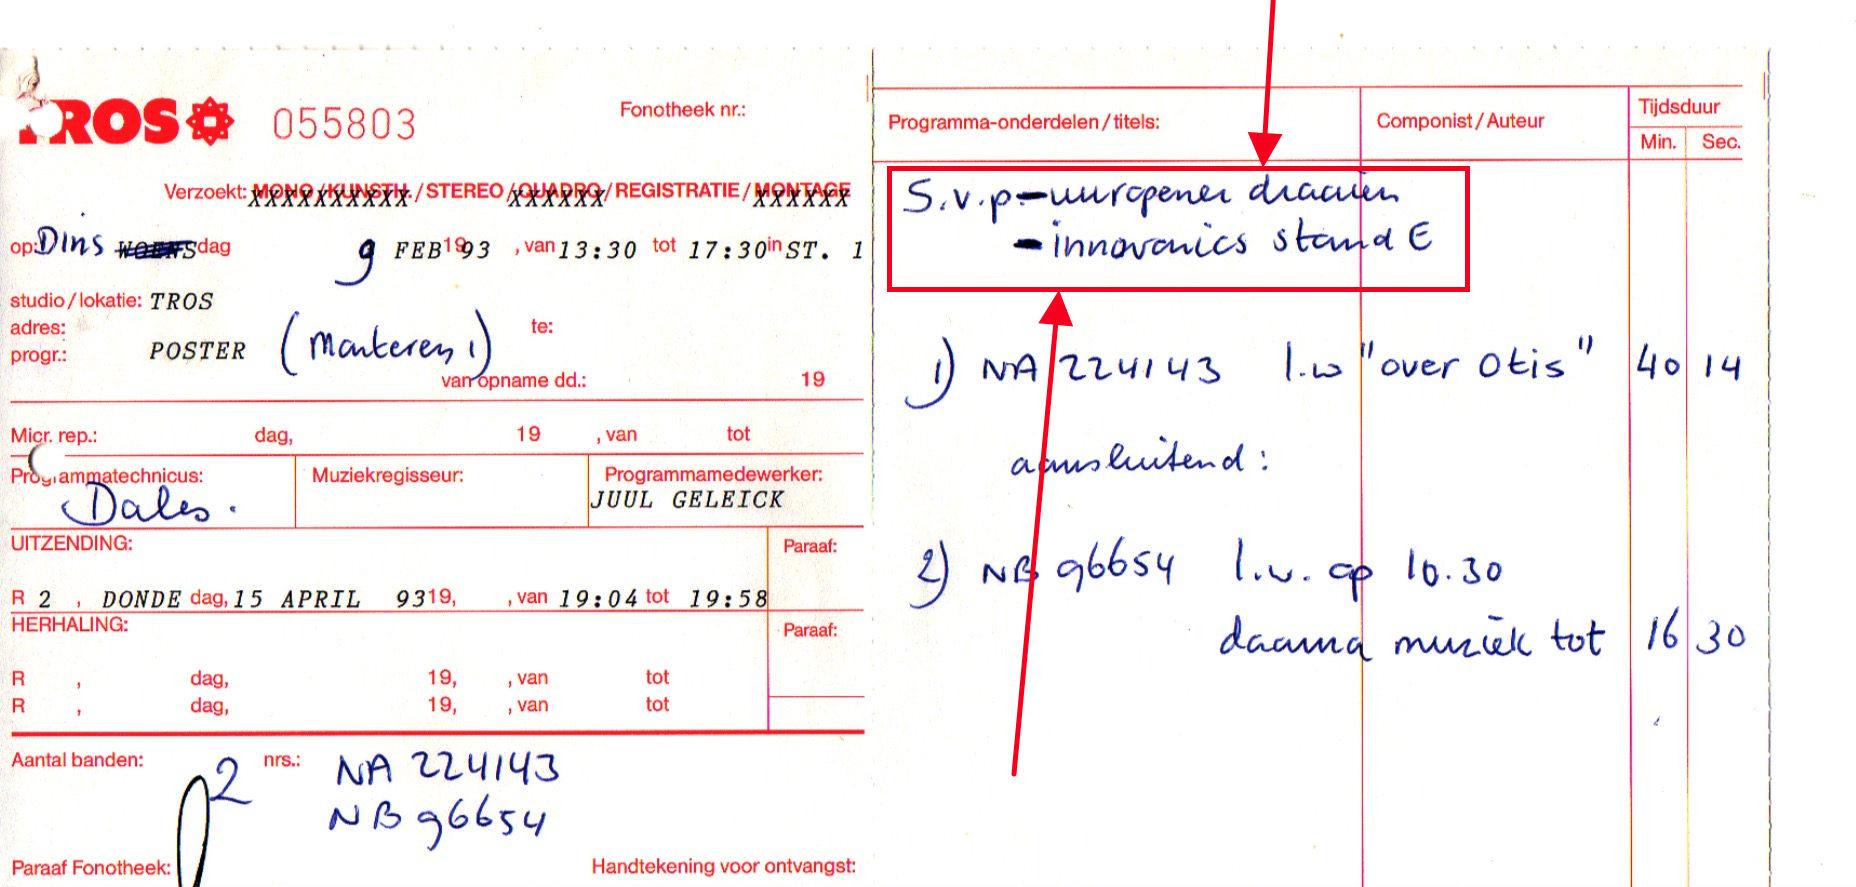 TROS 055803 Fonotheek nr.:
Verzoekt: MONO/KUNSTH./STEREO/QUADRO/REGISTRATIE/MONTAGE
op: Dins WOENSdag 9 FEB 1993 , van 13:30 tot 17:30 in ST. 1
studio/lokatie: TROS
adres: te:
progr.: POSTER (Monteren 1)
van opname dd.: 19
Micr. rep.: dag, 19 , van tot
Programmatechnicus: Muziekregisseur: Programmamedewerker:
Dales. JUUL GELEICK
UITZENDING: Paraaf:
R 2 , DONDE dag, 15 APRIL 9319, , van 19:04 tot 19:58
HERHALING: Paraaf:
R , dag, 19, , van tot
R , dag, 19, , van tot
Aantal banden: 2 nrs.: NA 224143
NB 96654
Paraaf Fonotheek: Handtekening voor ontvangst:
Programma-onderdelen/titels: Componist/Auteur Tijdsduur
Min. Sec.
S.v.p. - uuropener draaien
- innovonics stand E
1) NA 224143 l.w "over Otis" 40 14
aansluitend:
2) NB 96654 l.w. op 10.30
daarna muziek tot 16 30